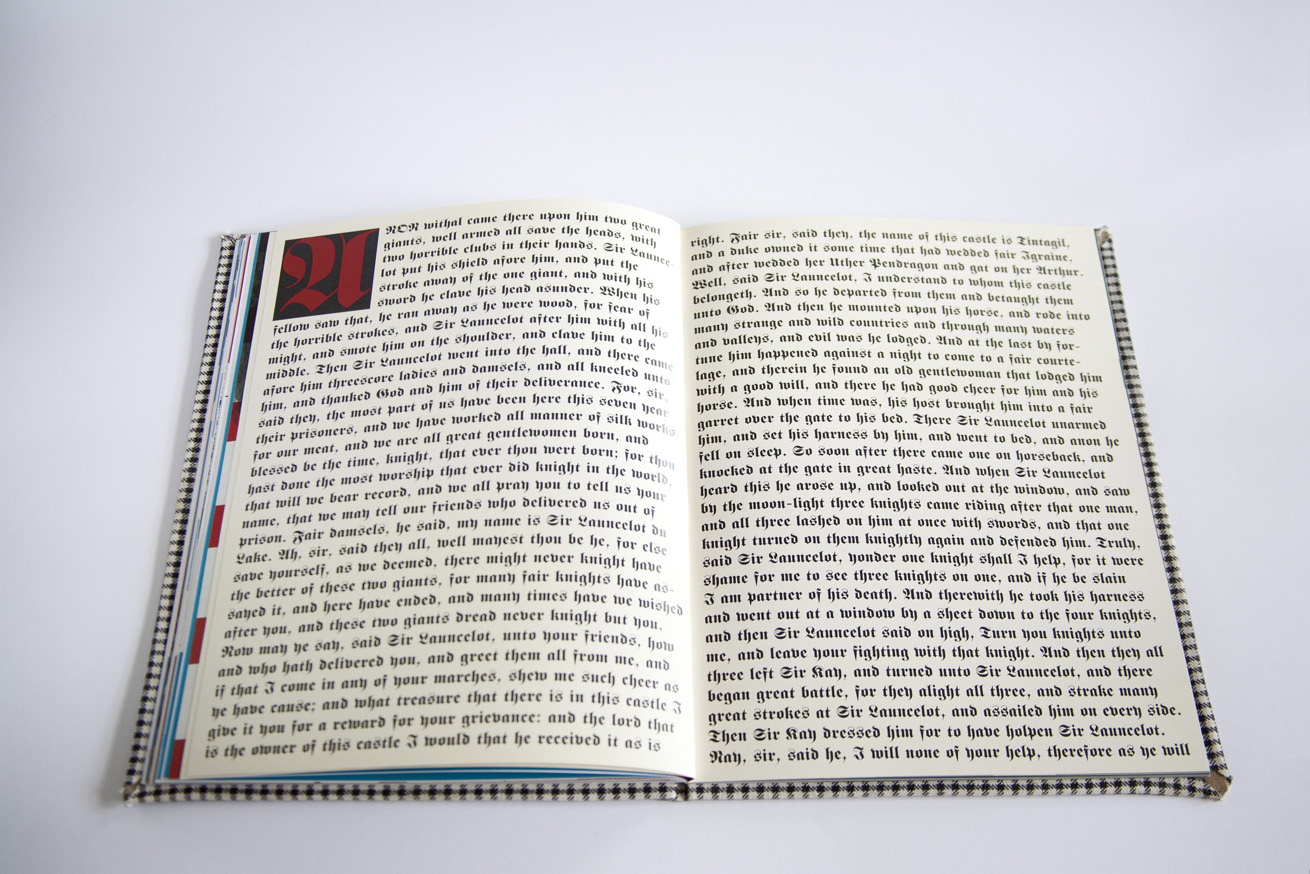 ANON withal came there upon him two great
giants, well armed all save the heads, with
two horrible clubs in their hands. Sir Launce-
lot put his shield afore him, and put the
stroke away of the one giant, and with his
sword he clave his head asunder. When his
fellow saw that, he ran away as he were wood, for fear of
the horrible strokes, and Sir Launcelot after him with all his
might, and smote him on the shoulder, and clave him to the
middle. Then Sir Launcelot went into the hall, and there came
afore him threescore ladies and damsels, and all kneeled unto
him, and thanked God and him of their deliverance. For, sir,
said they, the most part of us have been here this seven year
their prisoners, and we have worked all manner of silk works
for our meat, and we are all great gentlewomen born, and
blessed be the time, knight, that ever thou wert born; for thou
hast done the most worship that ever did knight in the world,
that will we bear record, and we all pray you to tell us your
name, that we may tell our friends who delivered us out of
prison. Fair damsels, he said, my name is Sir Launcelot du
Lake. Ah, sir, said they all, well mayest thou be he, for else
save yourself, as we deemed, there might never knight have
the better of these two giants, for many fair knights have as-
sayed it, and here have ended, and many times have we wished
after you, and these two giants dread never knight but you.
Now may ye say, said Sir Launcelot, unto your friends, how
and who hath delivered you, and greet them all from me, and
if that I come in any of your marches, shew me such cheer as
ye have cause; and what treasure that there is in this castle I
give it you for a reward for your grievance: and the lord that
is the owner of this castle I would that he received it as is
right. Fair sir, said they, the name of this castle is Tintagil,
and a duke owned it some time that had wedded fair Igraine,
and after wedded her Uther Pendragon and gat on her Arthur.
Well, said Sir Launcelot, I understand to whom this castle
belongeth. And so he departed from them and betaught them
unto God. And then he mounted upon his horse, and rode into
many strange and wild countries and through many waters
and valleys, and evil was he lodged. And at the last by for-
tune him happened against a night to come to a fair courte-
lage, and therein he found an old gentlewoman that lodged him
with a good will, and there he had good cheer for him and his
horse. And when time was, his host brought him into a fair
garret over the gate to his bed. There Sir Launcelot unarmed
him, and set his harness by him, and went to bed, and anon he
fell on sleep. So soon after there came one on horseback, and
knocked at the gate in great haste. And when Sir Launcelot
heard this he arose up, and looked out at the window, and saw
by the moon-light three knights came riding after that one man,
and all three lashed on him at once with swords, and that one
knight turned on them knightly again and defended him. Truly,
said Sir Launcelot, yonder one knight shall I help, for it were
shame for me to see three knights on one, and if he be slain
I am partner of his death. And therewith he took his harness
and went out at a window by a sheet down to the four knights,
and then Sir Launcelot said on high, Turn you knights unto
me, and leave your fighting with that knight. And then they all
three left Sir Kay, and turned unto Sir Launcelot, and there
began great battle, for they alight all three, and strake many
great strokes at Sir Launcelot, and assailed him on every side.
Then Sir Kay dressed him for to have holpen Sir Launcelot.
Nay, sir, said he, I will none of your help, therefore as ye will